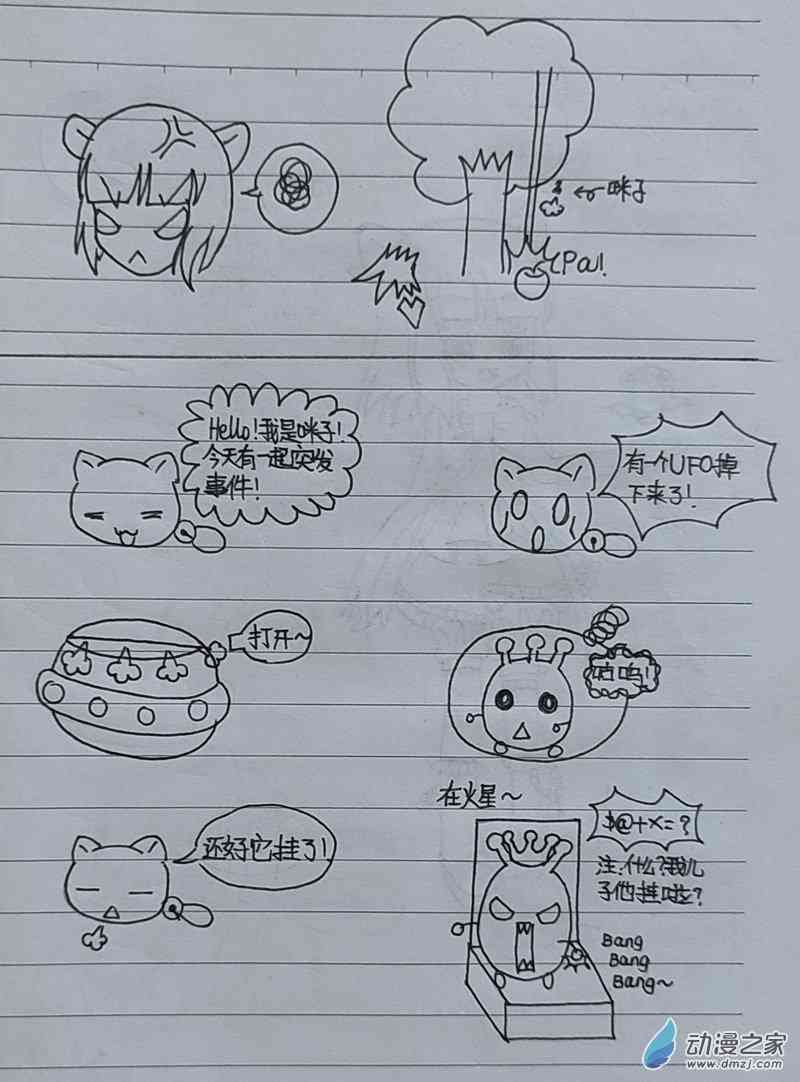 咪子
Pa!
Hello!我是咪子!
今天有一起突发
事件!
有一个UFO掉
下来了!
打开~
呜!
还好它挂了!
在火星~
$@+×=?
注:什么?我儿
子他挂啦?
Bang
Bang
Bang~
动漫之家
www.dmzj.com